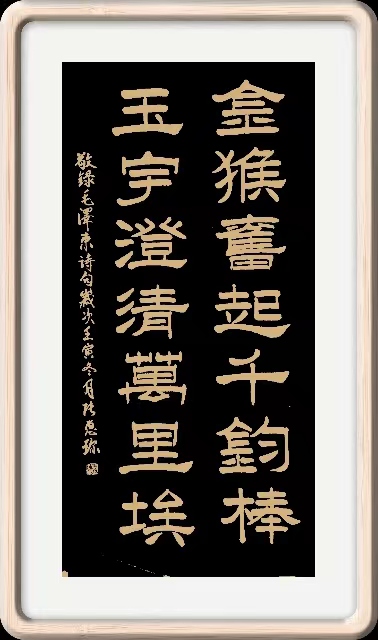 金猴奮起千鈞棒
玉宇澄清萬里埃
敬錄毛澤東詩句歲次壬寅冬月